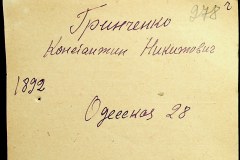 278 г
Гринченко
Константин Никитович
1892
Одесская 28